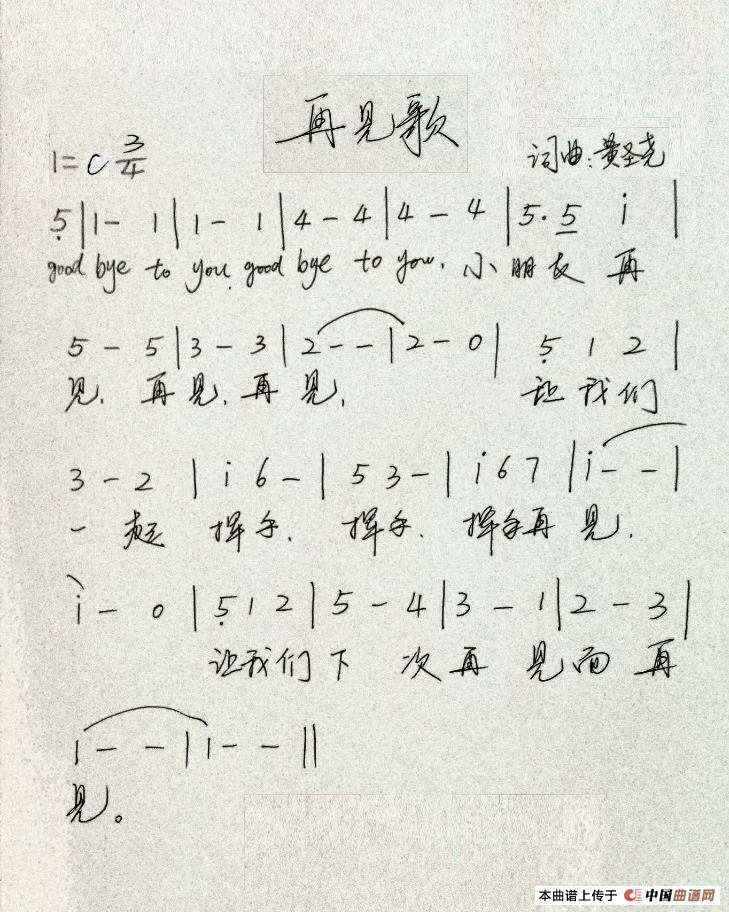 再见歌
1=C 3/4
词曲:黄圣尧
5̣ | 1 - 1 | 1 - 1 | 4 - 4 | 4 - 4 | 5· 5̲ i |
good bye to you. good bye to you. 小朋友 再
5 - 5 | 3 - 3 | 2 - - | 2 - 0 | 5̣ 1 2 |
见. 再见. 再见. 让我们
3 - 2 | i 6 - | 5 3 - | i 6 7 | i - - |
一起 挥手. 挥手. 挥手再见.
i - 0 | 5̣ 1 2 | 5 - 4 | 3 - 1 | 2 - 3 |
让我们下 次再 见面 再
1 - - | 1 - - ||
见。
本曲谱上传于 中国曲谱网